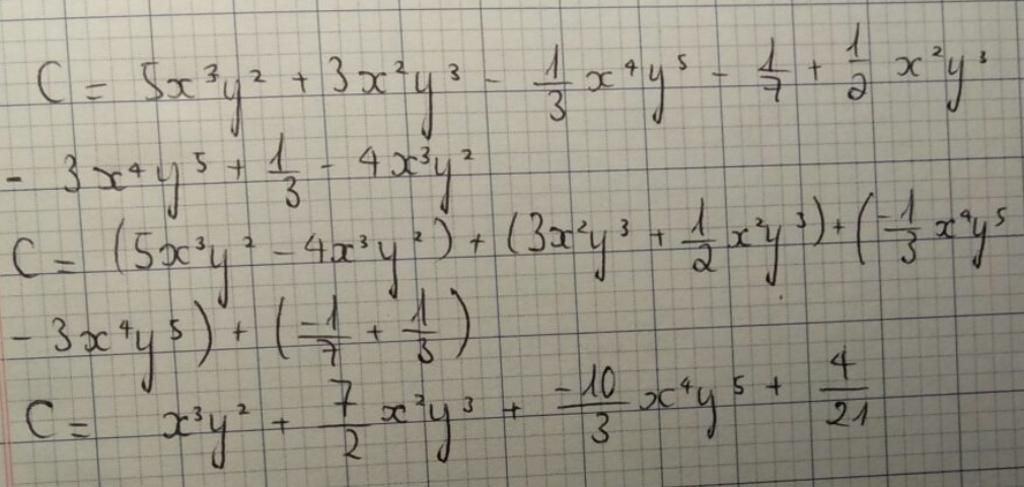 C = 5x³y² + 3x²y³ - 1/3 x⁴y⁵ - 1/7 + 1/2 x²y³
- 3x⁴y⁵ + 1/3 - 4x³y²
C = (5x³y² - 4x³y²) + (3x²y³ + 1/2 x²y³) + (-1/3 x⁴y⁵
- 3x⁴y⁵) + (-1/7 + 1/3)
C = x³y² + 7/2 x²y³ + -10/3 x⁴y⁵ + 4/21